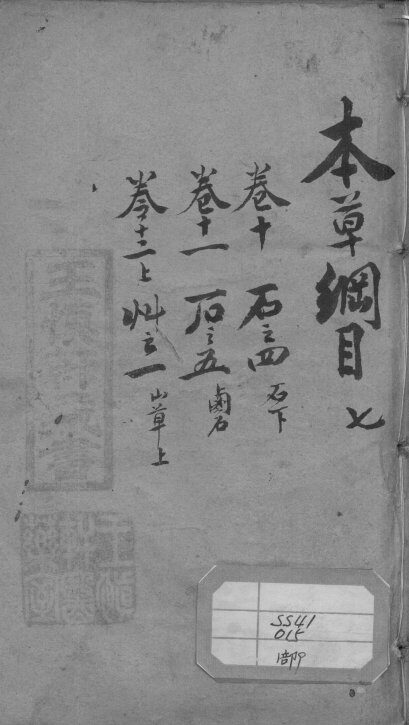 本草綱目 七
卷十 石之四 石下
卷十一 石之五 鹵石
卷十二上 艸之一 山草上
SS41
015